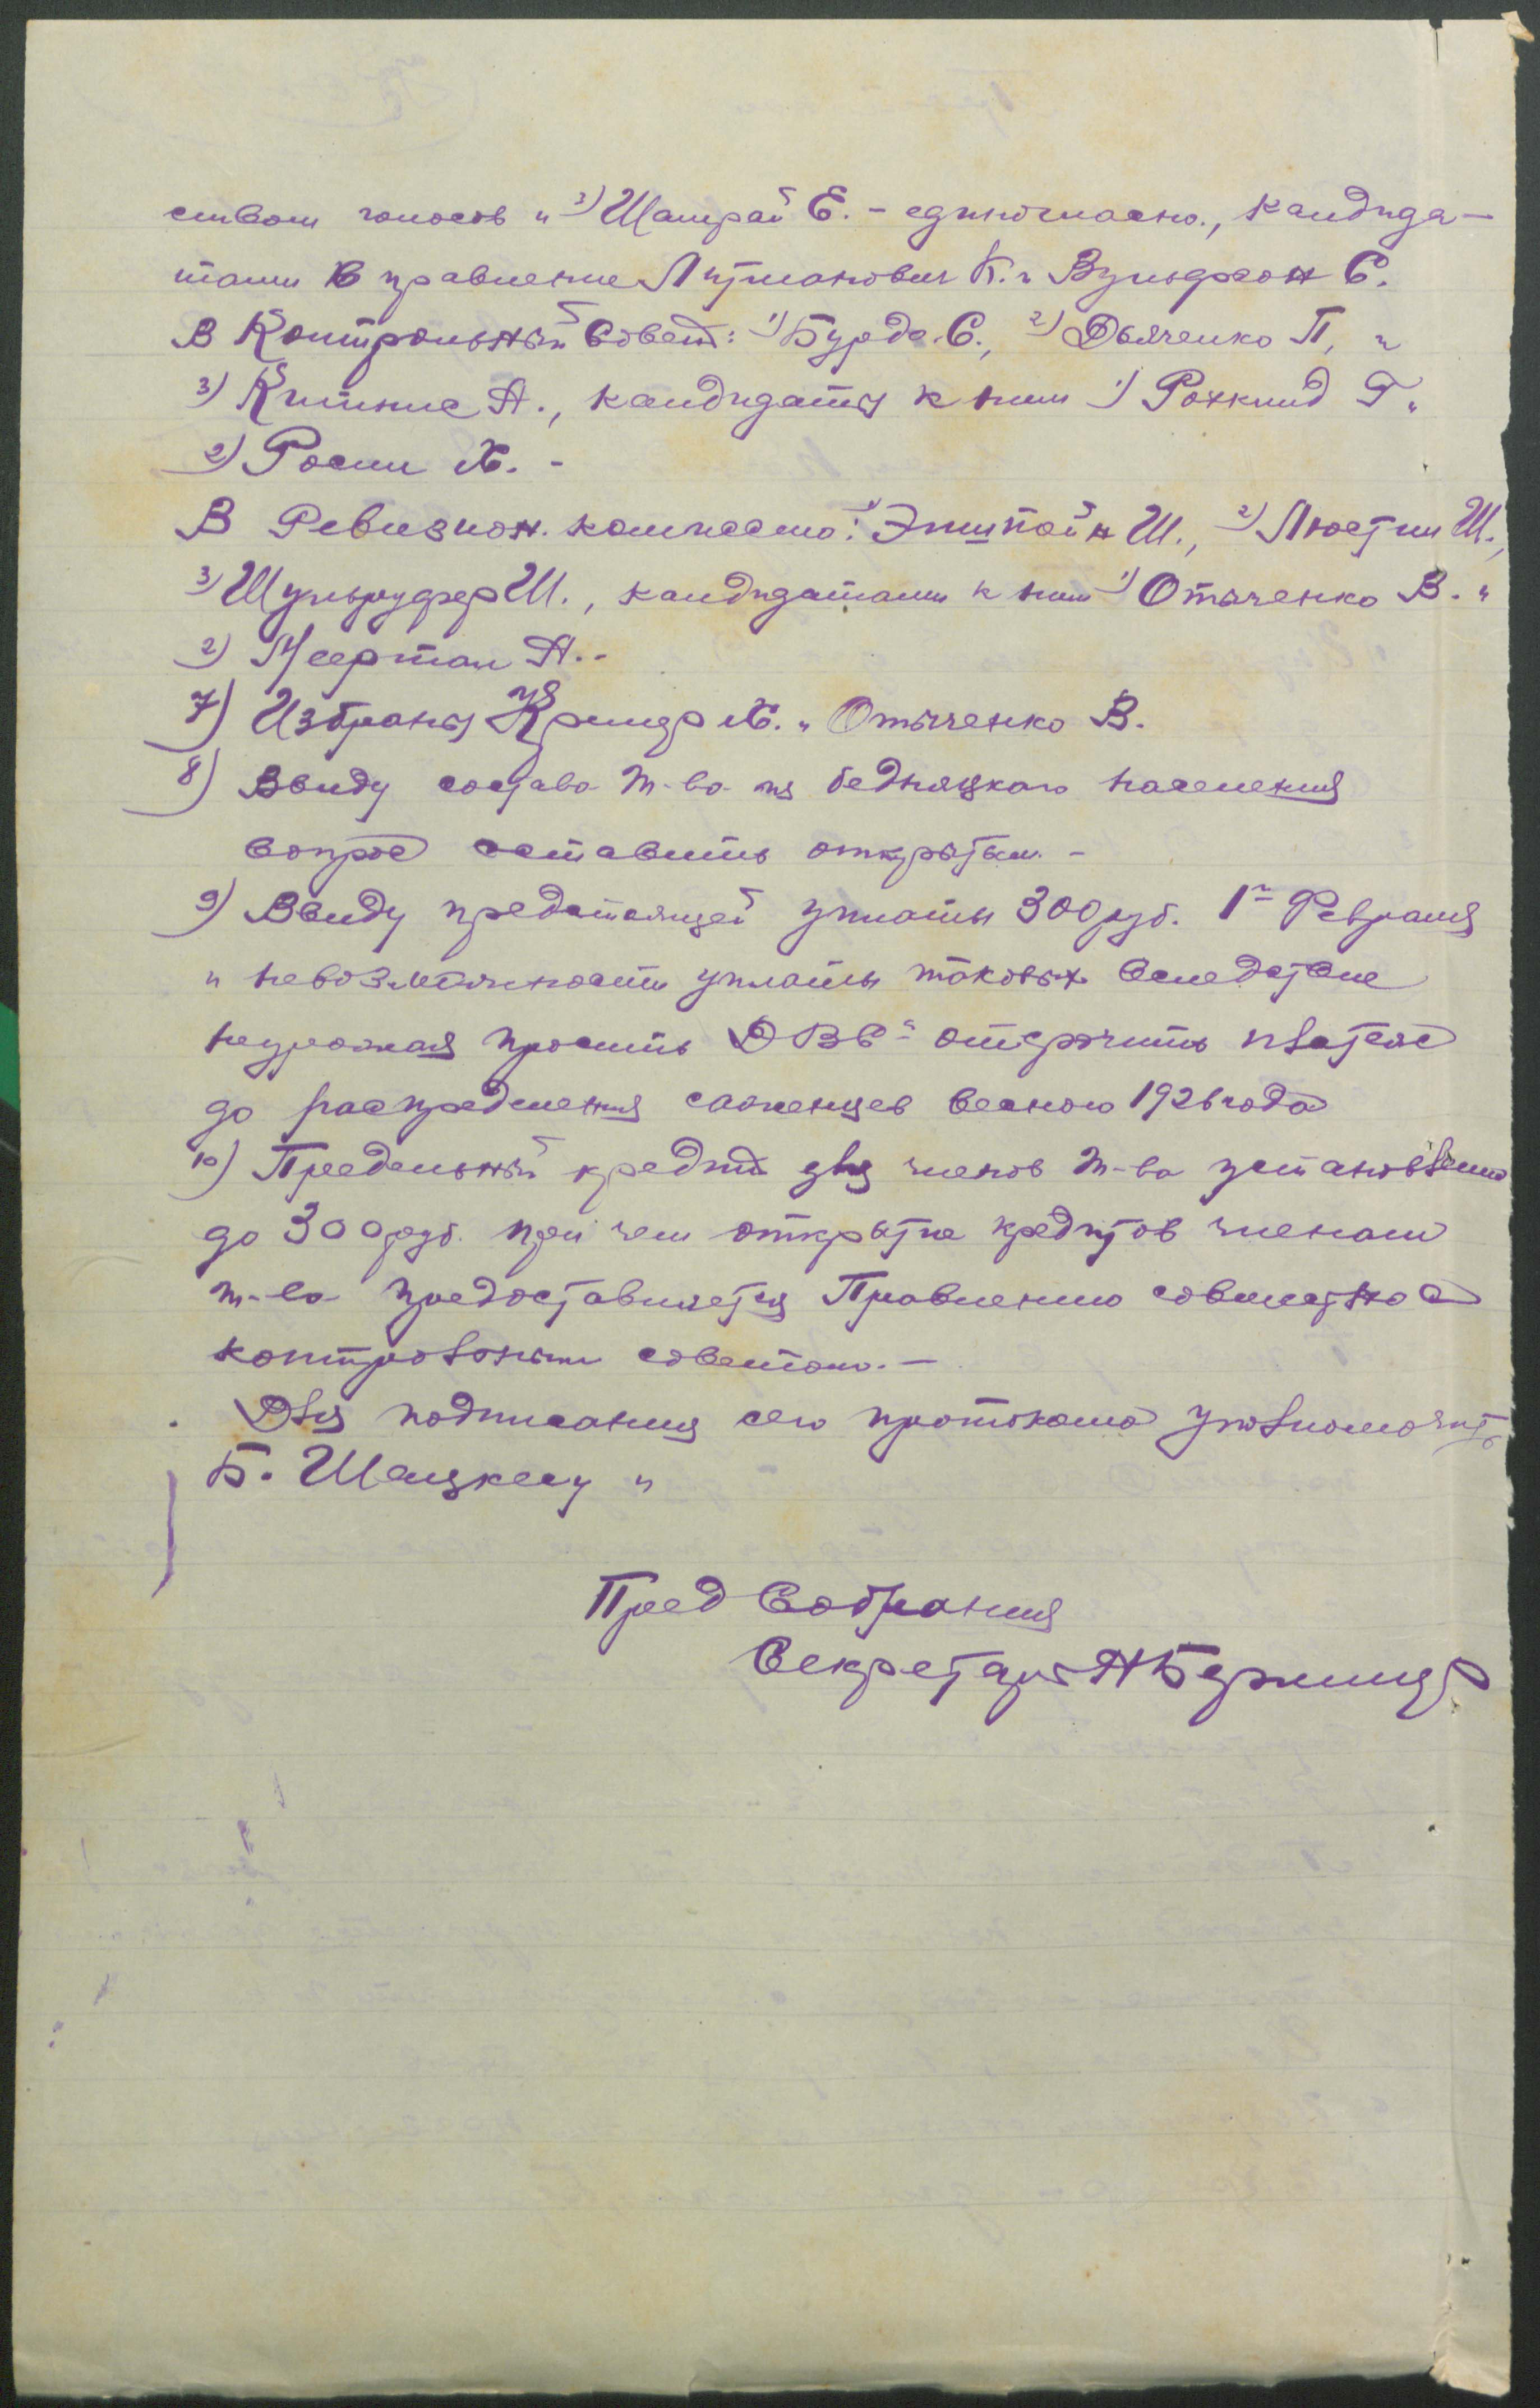 ством голосов и 3) Шамрай Е. - единогласно., кандида-
тами в правление Литманович Б. и Вульфсон С.
В Контрольный Совет: 1) Бурда С., 2) Дьяченко П, и
3) Китнис А., кандидаты к ним 1) Рохкинд Г и
2) Росин Х. -
В Ревизион. комиссию: 1) Эпштейн Ш., 2) Люстин Ш.,
3) Ш., кандидатами к ним 1) Отяченко В. и
2) А. -
7) Избраны Х. и Отяченко В.
8) Ввиду состава т-ва из бедняцкого населения
вопрос оставить открытым. -
9) Ввиду предстоящей уплаты 300 руб. 1го Февраля
и невозможности уплаты таковых вследствие
неурожая просить отсрочить платеж
до распределения саженцев весною 1926 года
10) Предельный кредит для членов т-ва установлено
до 300 руб. при чем открытие кредитов членам
т-ва предоставляется Правлению совместно с
контрольным советом. -
Для подписания сего протокола уполномочить
Б. и
Пред Собрания
Секретарь